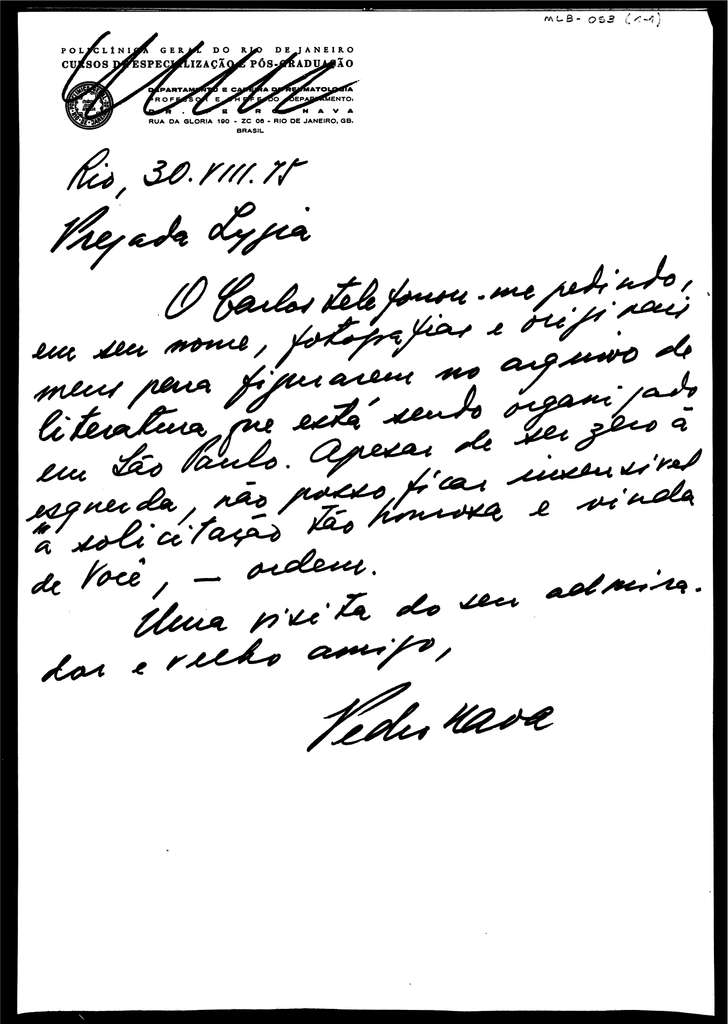 MLB-053 (1-1)
POLICLÍNICA GERAL DO RIO DE JANEIRO
CURSOS DE ESPECIALIZAÇÃO E PÓS-GRADUAÇÃO
DEPARTAMENTO E CADEIRA DE REUMATOLOGIA
PROFESSOR E CHEFE DO DEPARTAMENTO:
DR. NAVA
RUA DA GLORIA 190 - ZC 06 - RIO DE JANEIRO, GB.
BRASIL
Rio, 30.VIII.75
Prezada Lygia
O Carlos telefonou-me pedindo,
em seu nome, fotografias e originais
meus para figurarem no arquivo de
literatura que está sendo organizado
em São Paulo. Apesar de ser zero à
esquerda, não posso ficar insensivel
à solicitação tão honrosa e vinda
de Você, — ordem.
Uma visita do seu admira-
dor e velho amigo,
Pedro Nava